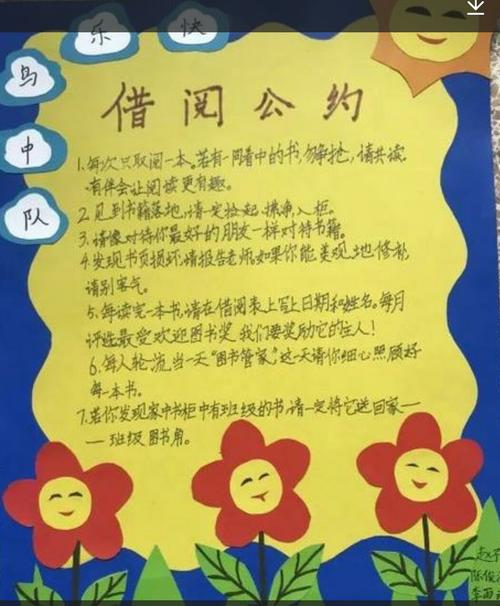 快
乐
鸟
中
队
借阅公约
1.每次只取阅一本。若有一同看中的书,勿争抢,请共读.
有伴会让阅读更有趣。
2.见到书籍落地,请一定捡起,擦净,入柜。
3.请像对待你最好的朋友一样对待书籍。
4.发现书页损坏,请报告老师,如果你能美观地修补,
请别客气。
5.每读完一本书,请在借阅表上写上日期和姓名。每月
评选最受欢迎图书奖,我们要奖励它的主人!
6.每人轮流当一天"图书管家",这一天请你细心照顾好
每一本书。
7.若你发现家中书柜中有班级的书,请一定将它送回家—
—班级图书角。
陈俊